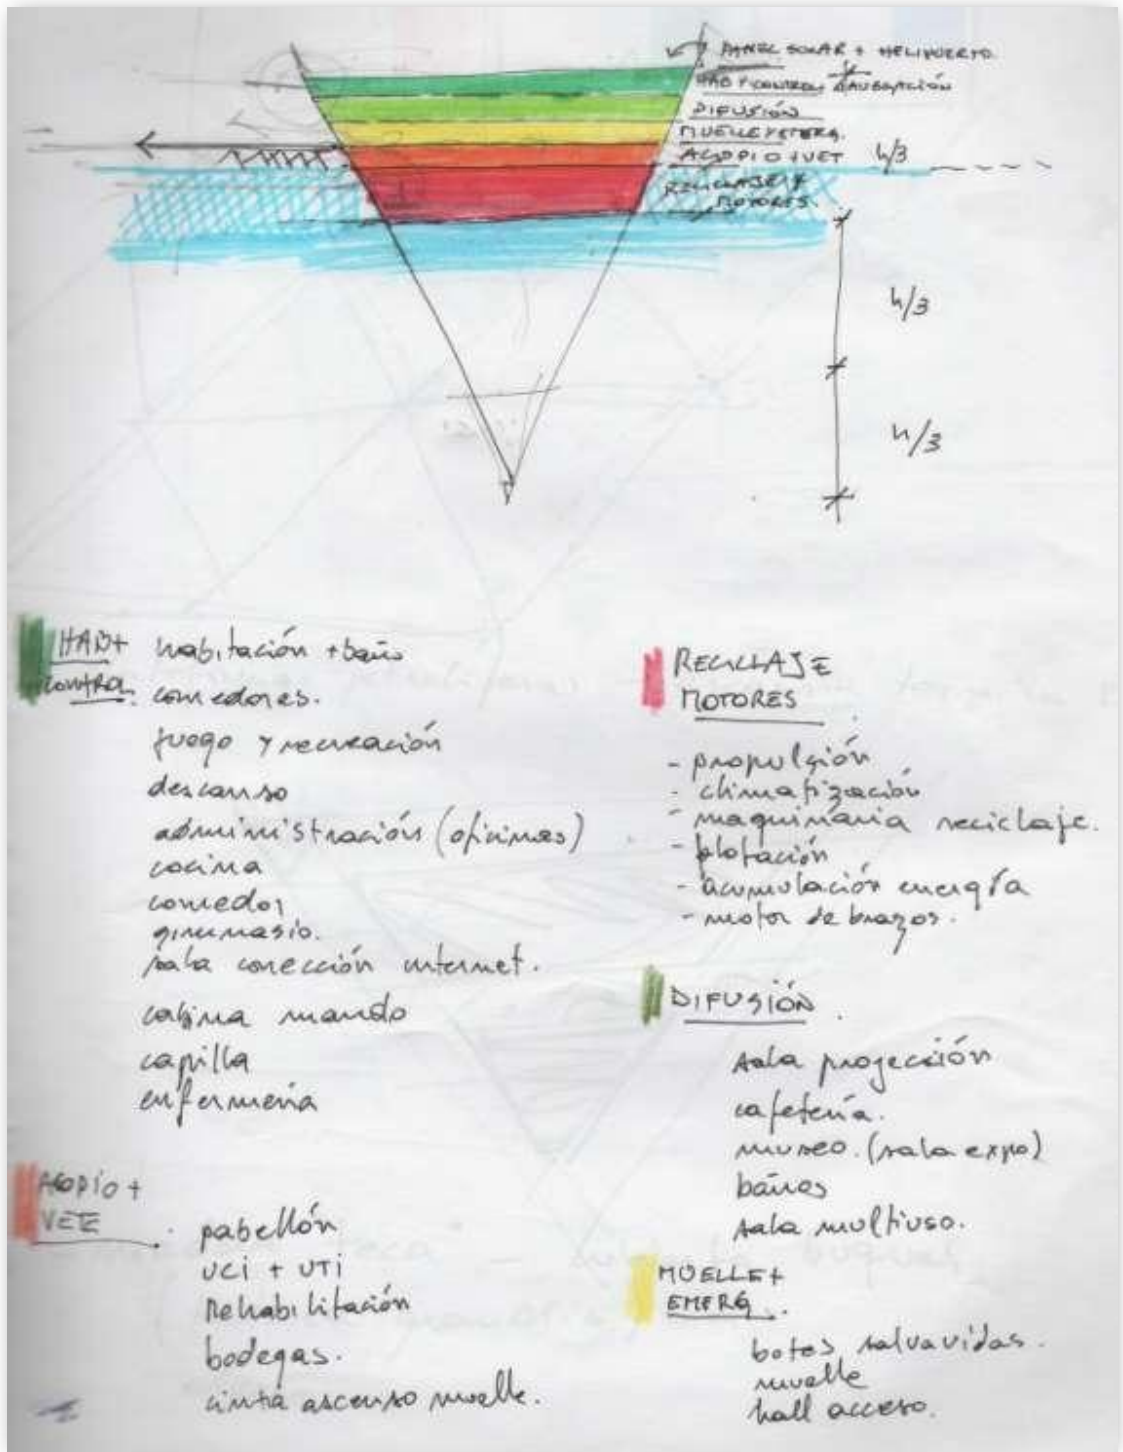 PANEL SOLAR + HELIPUERTO.
HAB Y CONTROL NAVEGACIÓN
DIFUSIÓN
MUELLE Y EMERG.
ACOPIO + VET
h/3
RECICLAJE Y
MOTORES.
h/3
h/3
HAB+
CONTROL.
habitación + baño
comedores.
juego y recreación
descanso
administración (oficinas)
cocina
comedor
gimnasio.
sala conección internet.
cabina mando
capilla
enfermería
ACOPIO +
VETE
pabellón
UCI + UTI
Rehabilitación
bodegas.
cinta ascenso muelle.
RECICLAJE
MOTORES
- propulsión
- climatización
- maquinaria reciclaje.
- flotación
- acumulación energía
- motor de brazos.
DIFUSIÓN
sala proyección
cafetería.
museo. (sala expo)
baños
sala multiuso.
MUELLE +
EMERG.
botes salvavidas.
muelle
hall acceso.